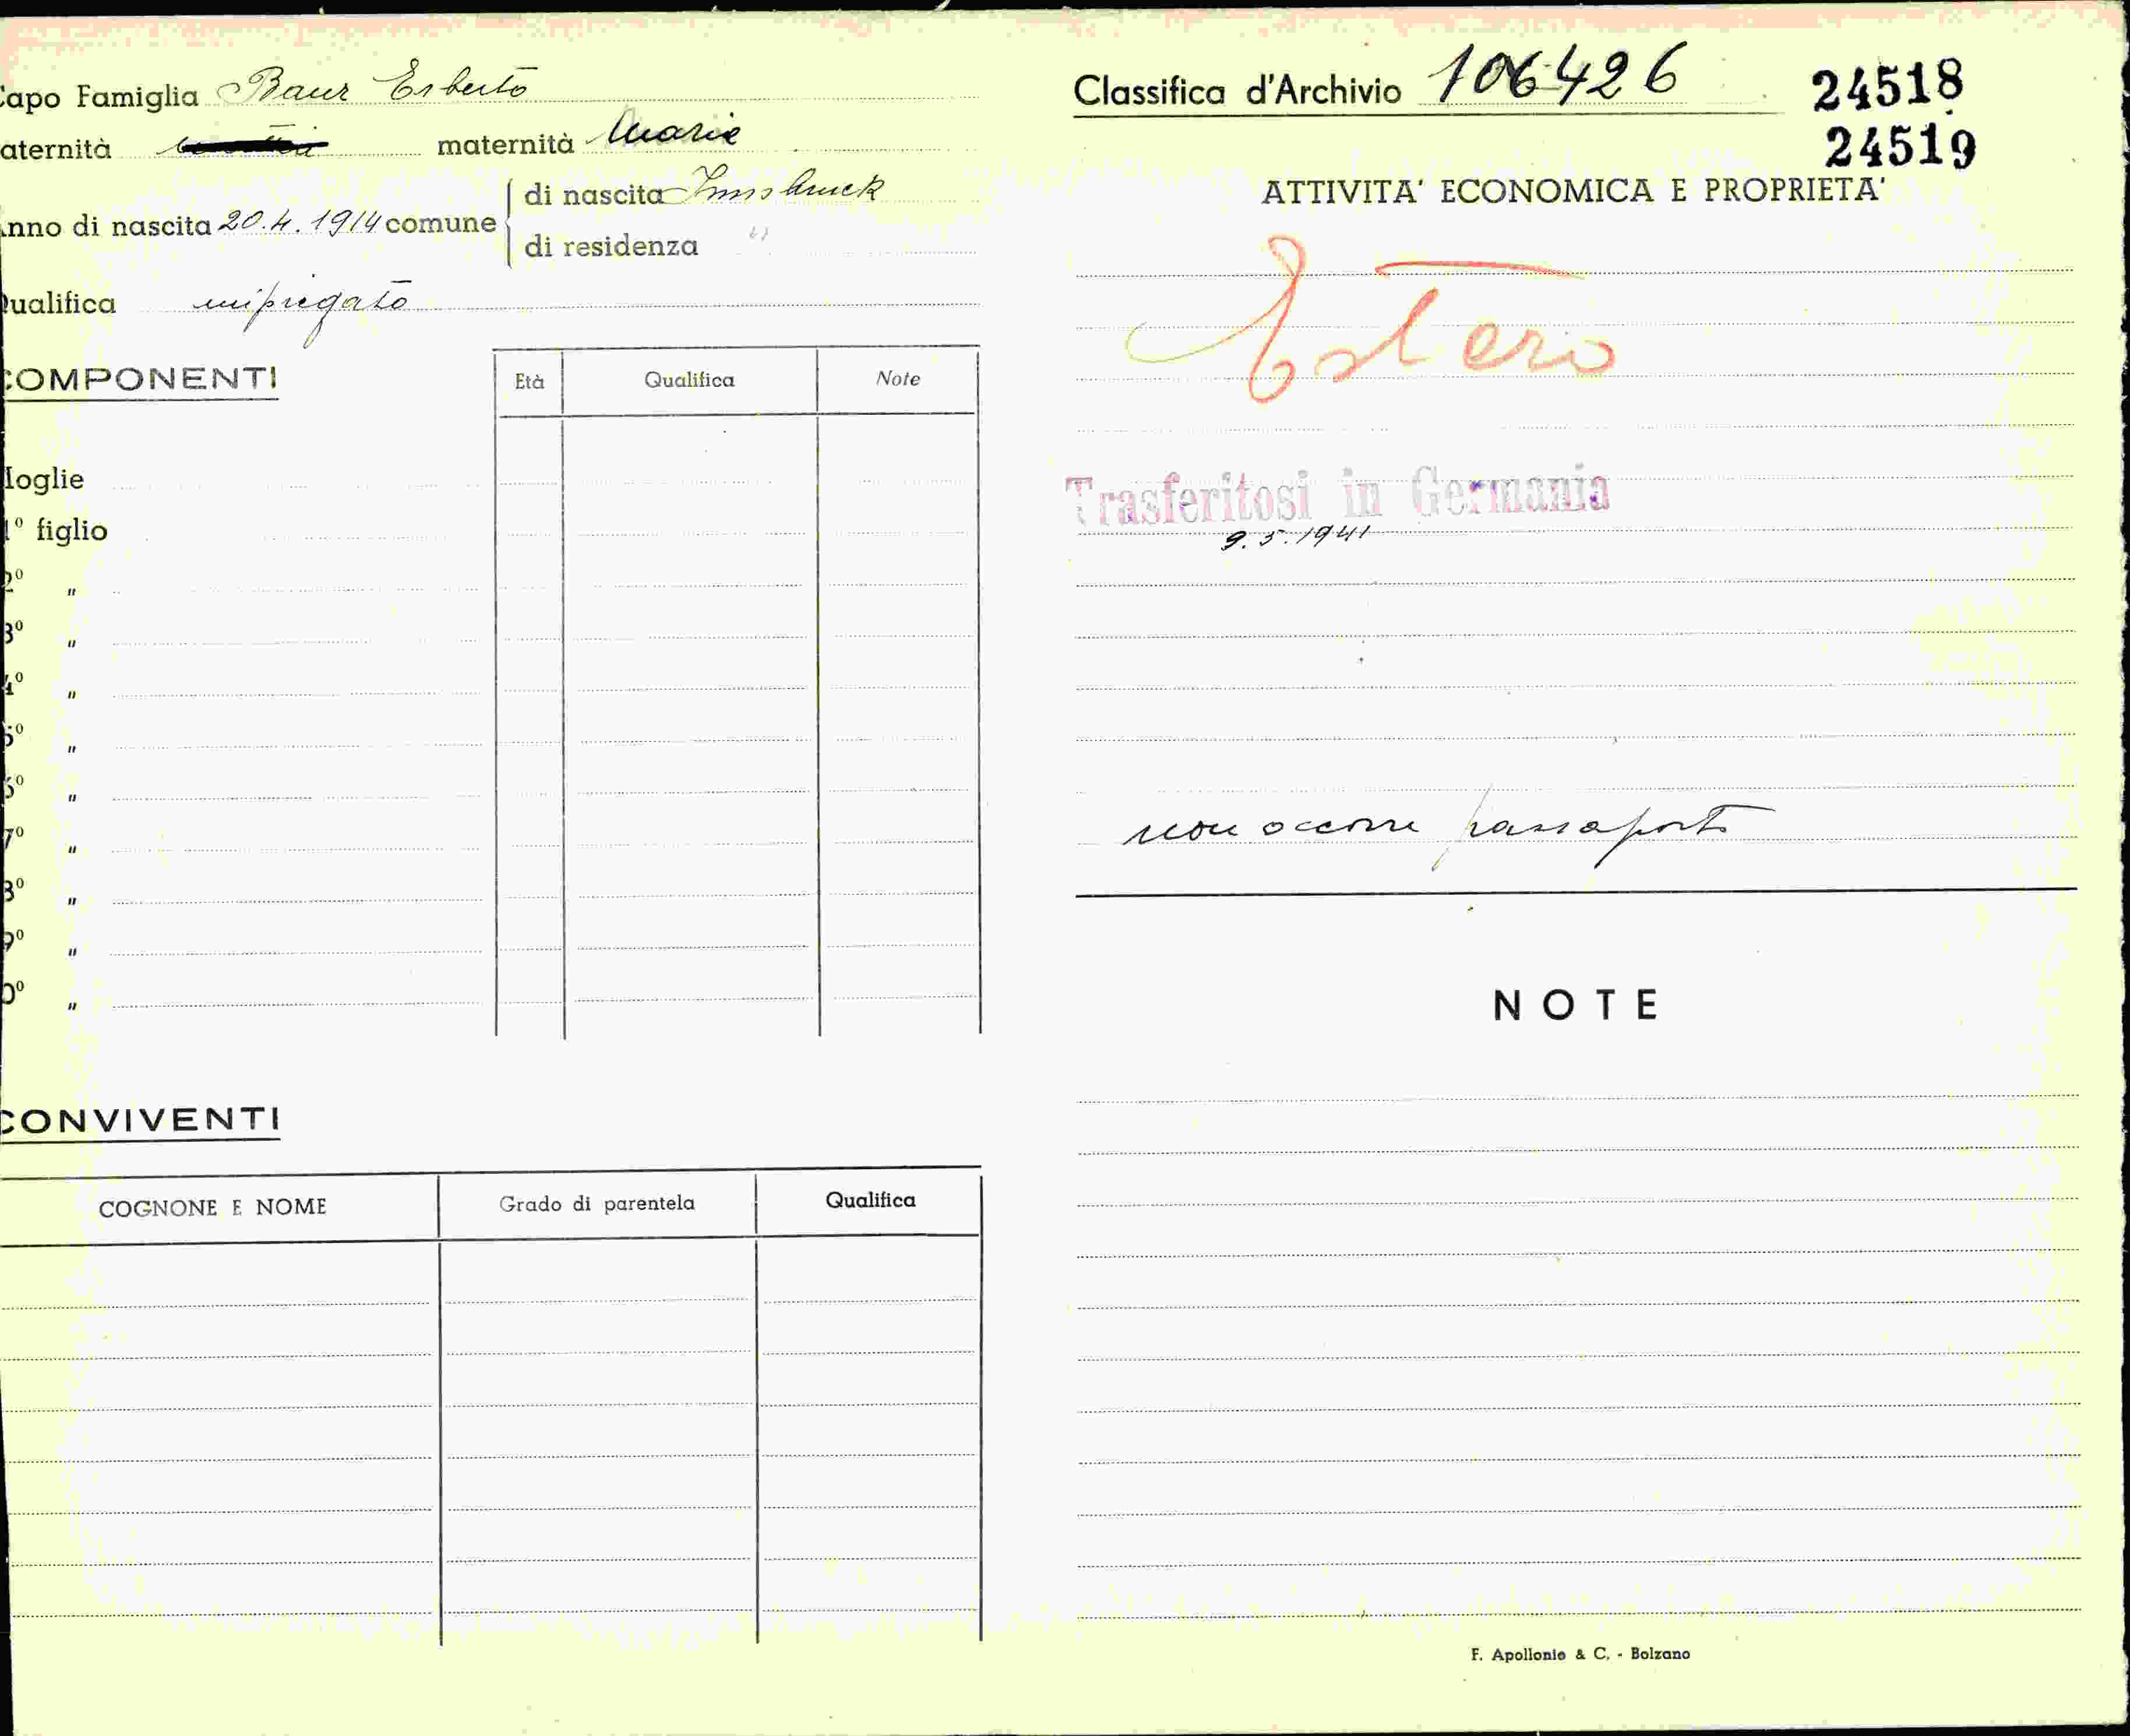 Capo Famiglia Baur Erberto
aternità maternità Marie
Anno di nascita 20.4.1914 comune di nascita Innsbruck
di residenza "
Qualifica impiegato
COMPONENTI
Età Qualifica Note
Moglie
1º figlio
2º "
3º "
4º "
5º "
6º "
7º "
8º "
9º "
0º "
CONVIVENTI
COGNONE E NOME Grado di parentela Qualifica
Classifica d'Archivio 106426
24518
24519
ATTIVITA' ECONOMICA E PROPRIETA'
Estero
Trasferitosi in Germania
9.5.1941
non occorre passaporto
NOTE
F. Apollonio & C. - Bolzano